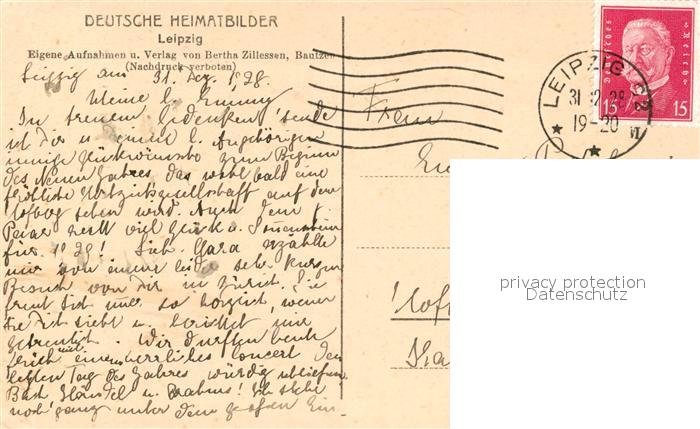 DEUTSCHE HEIMATBILDER
Leipzig
Eigene Aufnahmen u. Verlag von Bertha Zillessen, Bautzen
(Nachdruck verboten)
Leipzig am 31. Dez. 1928.
Meine l. Emmy
In treuem Gedenken sende
ich Dir u. Deinen l. Angehörigen
innige Glückwünsche zum Beginn
des Neuen Jahres, das wohl bald eine
fröhliche Hochzeitsgesellschaft auf dem
sehen wird. Auch dem l.
Paar viel Glück u. Sonnenschein
für 1929! Lieb. Clara erzählte
mir von einem leider sehr kurzen
Besuch von Dir in Zürich. Sie
freut sich immer so herzlich, wenn
sie Dich sieht u. berichtet mir
getreulich. Wir durften heute
durch ein herrliches Concert den
letzten Tag des Jahres würdig
Bach Händel u. Brahms! Ich stehe
noch ganz unter dem großen Ein-
Frau
Deutsches Reich
15 15
LEIPZIG C2
31.12.28
19-20 VI
privacy protection
Datenschutz